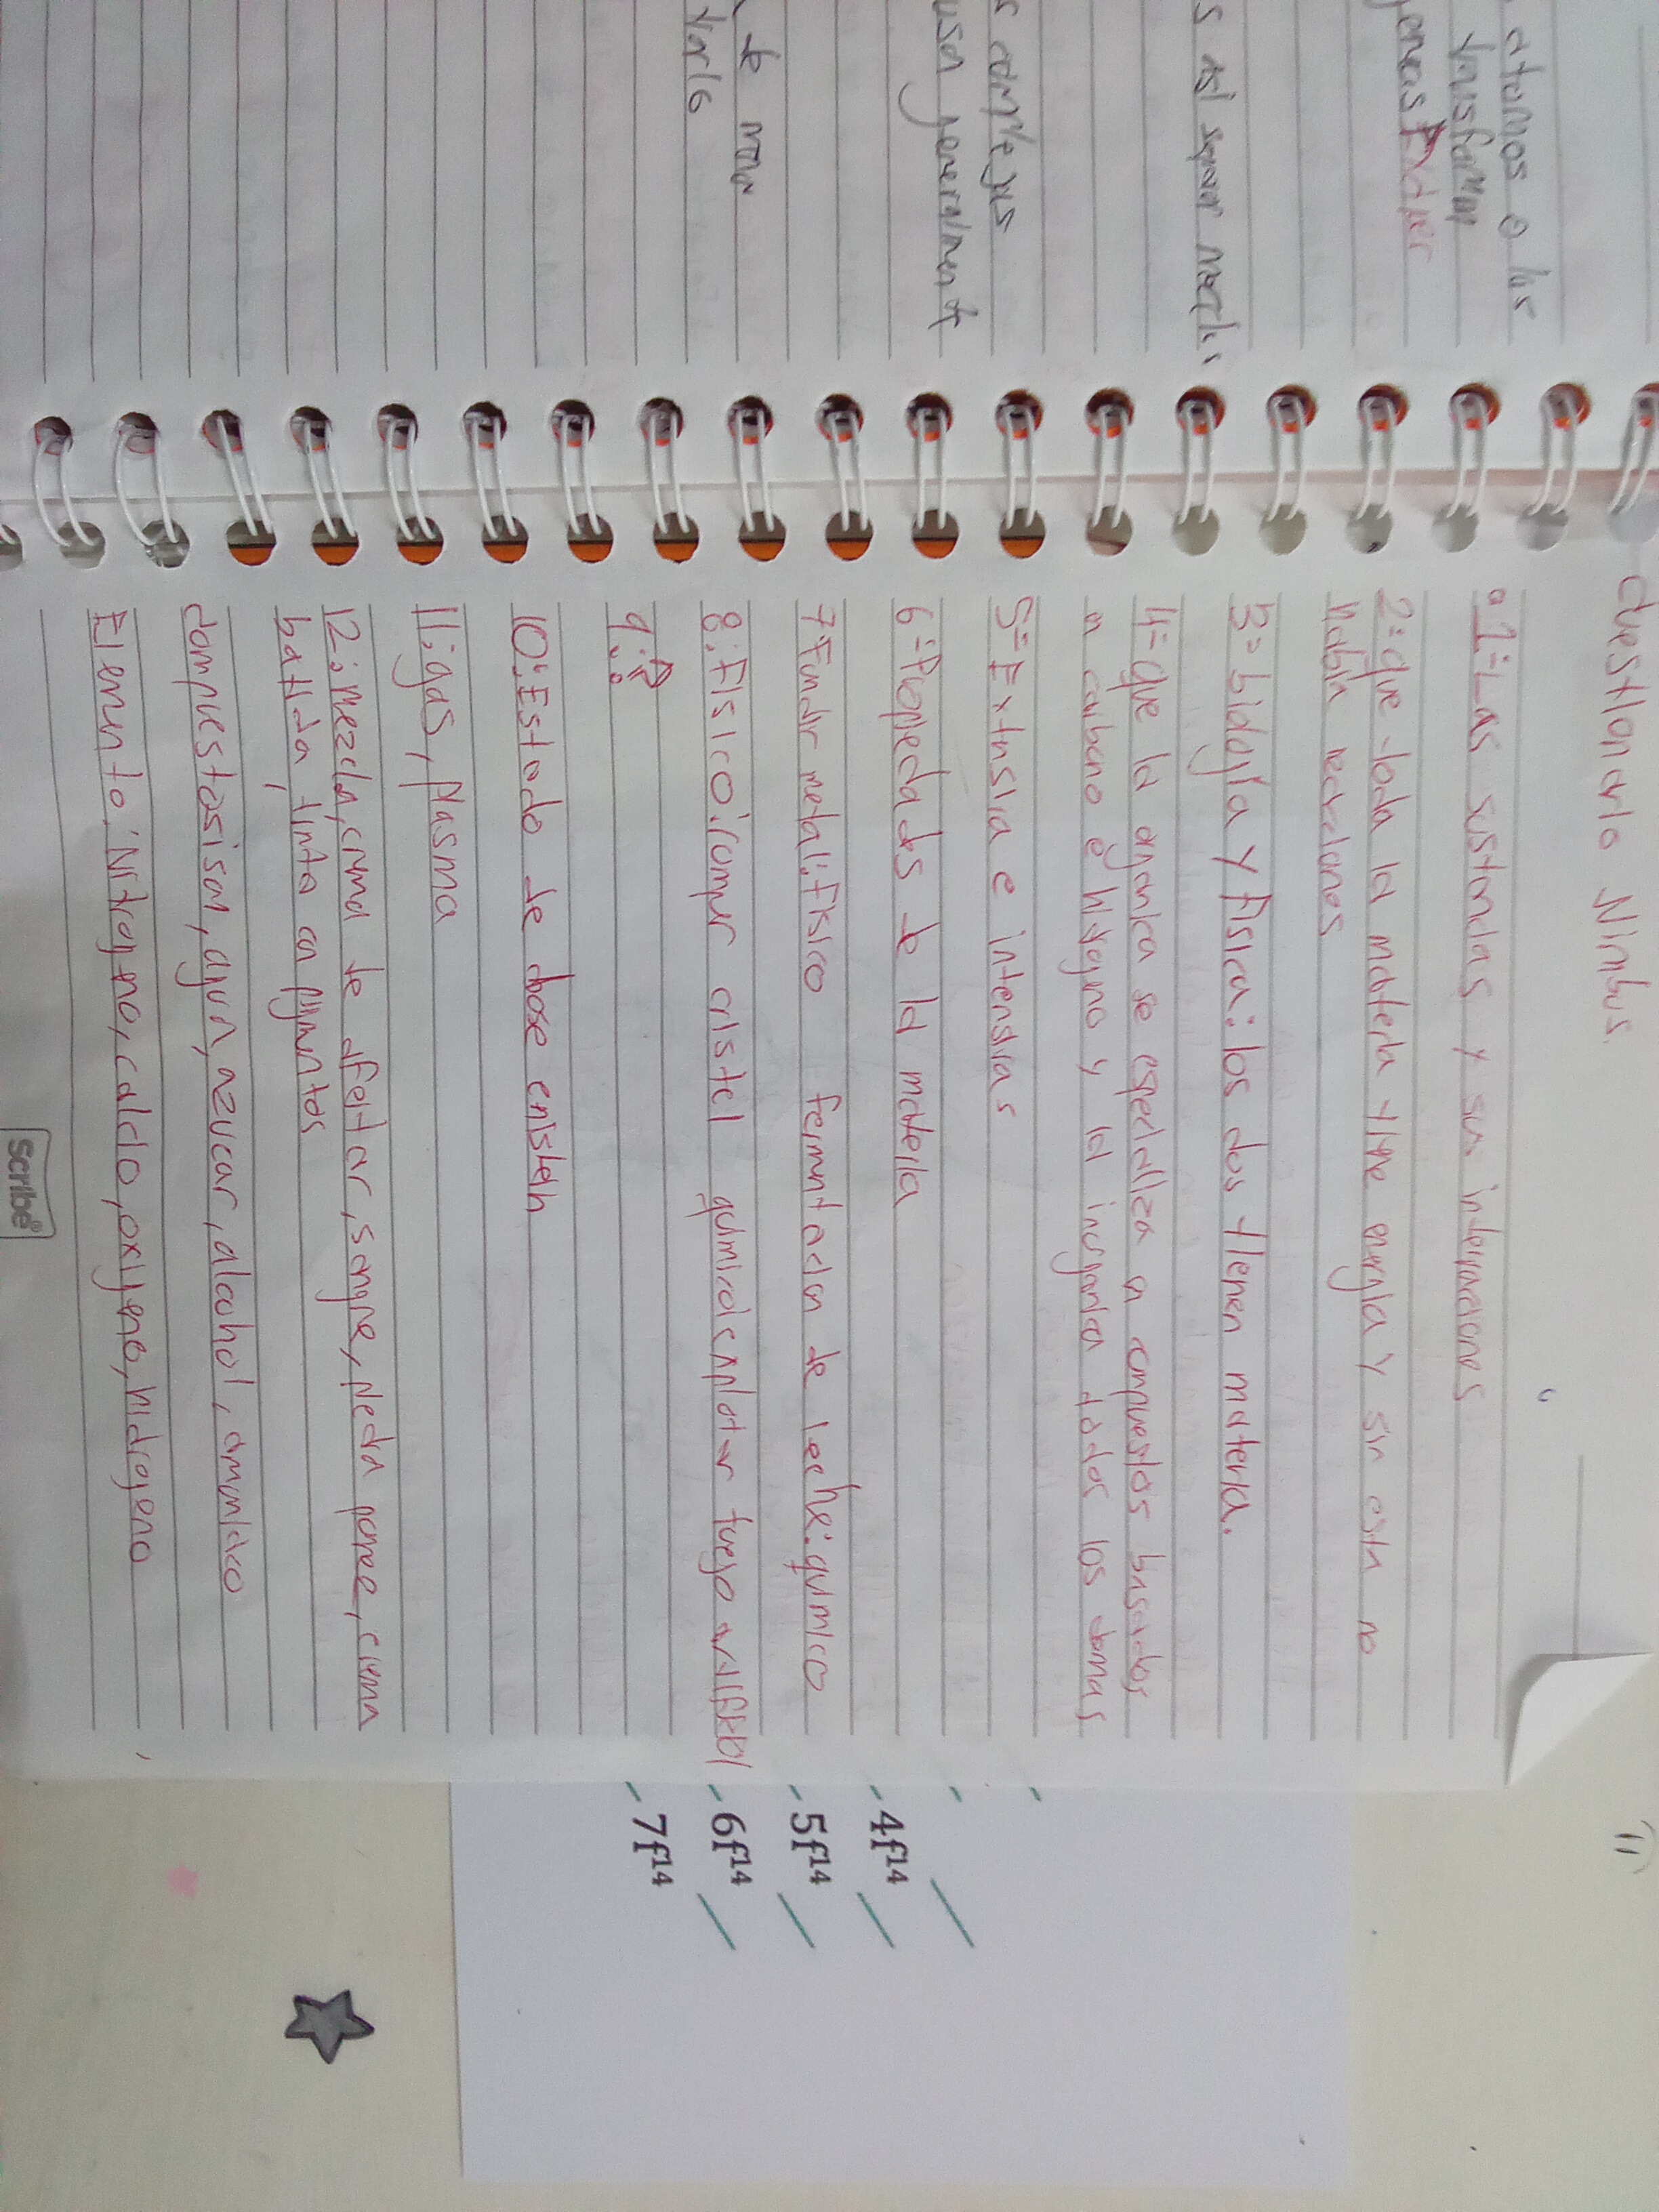 atomos o las
transforman
s asi separar mezcla
s complejas
usa generalmente
de mar
Vorlo
Cuestionario Nimbus.
1= Las sustancias y sus interacciones
2= que toda la materia tiene energia y sin esta no
habia reacciones
3= biologia y fisica: los dos tienen materia.
4= que la organica se especializa en compuestos basados
en carbono e hidrogeno y la inorganica todos los demas
5= Extensiva e intensivas
6= Propiedades de la materia
7= Fundir metal: Fisico fermentacion de leche: quimico
8: Fisico: romper cristal quimico: explotar fuego artificial
9: ?
10: Estado de
11: gas, plasma
12: mezcla, crema de afeitar, sangre, piedra pomez, crema
batida, tinta con pigmentos
agua, azucar, alcohol, amoniaco
Elemento: Nitrogeno, calcio, oxigeno, hidrogeno
Scribe®
4f¹⁴
5f¹⁴
6f¹⁴
7f¹⁴